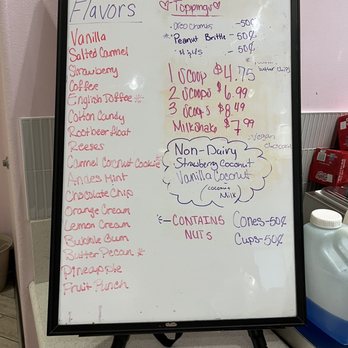 Flavors
Vanilla
Salted Carmel
Strawberry
Coffee
English Toffee
Cotton Candy
Rootbeer float
Reeses
Carmel Coconut Cookie
Andes Mint
Chocolate Chip
Orange Cream
Lemon Cream
Bubble Gum
Butter Pecan
Pineapple
Fruit Punch
Toppings
Oreo Crumbs -50¢
Peanut Brittle -50¢
-50¢
1 Scoop $4.75
2 Scoops $6.99
3 Scoops $8.49
Milkshake $7.99
vegan
Non-Dairy
Strawberry Coconut
Vanilla Coconut
(coconut
Milk)
*=CONTAINS
NUTS
Cones-50¢
Cups-50¢